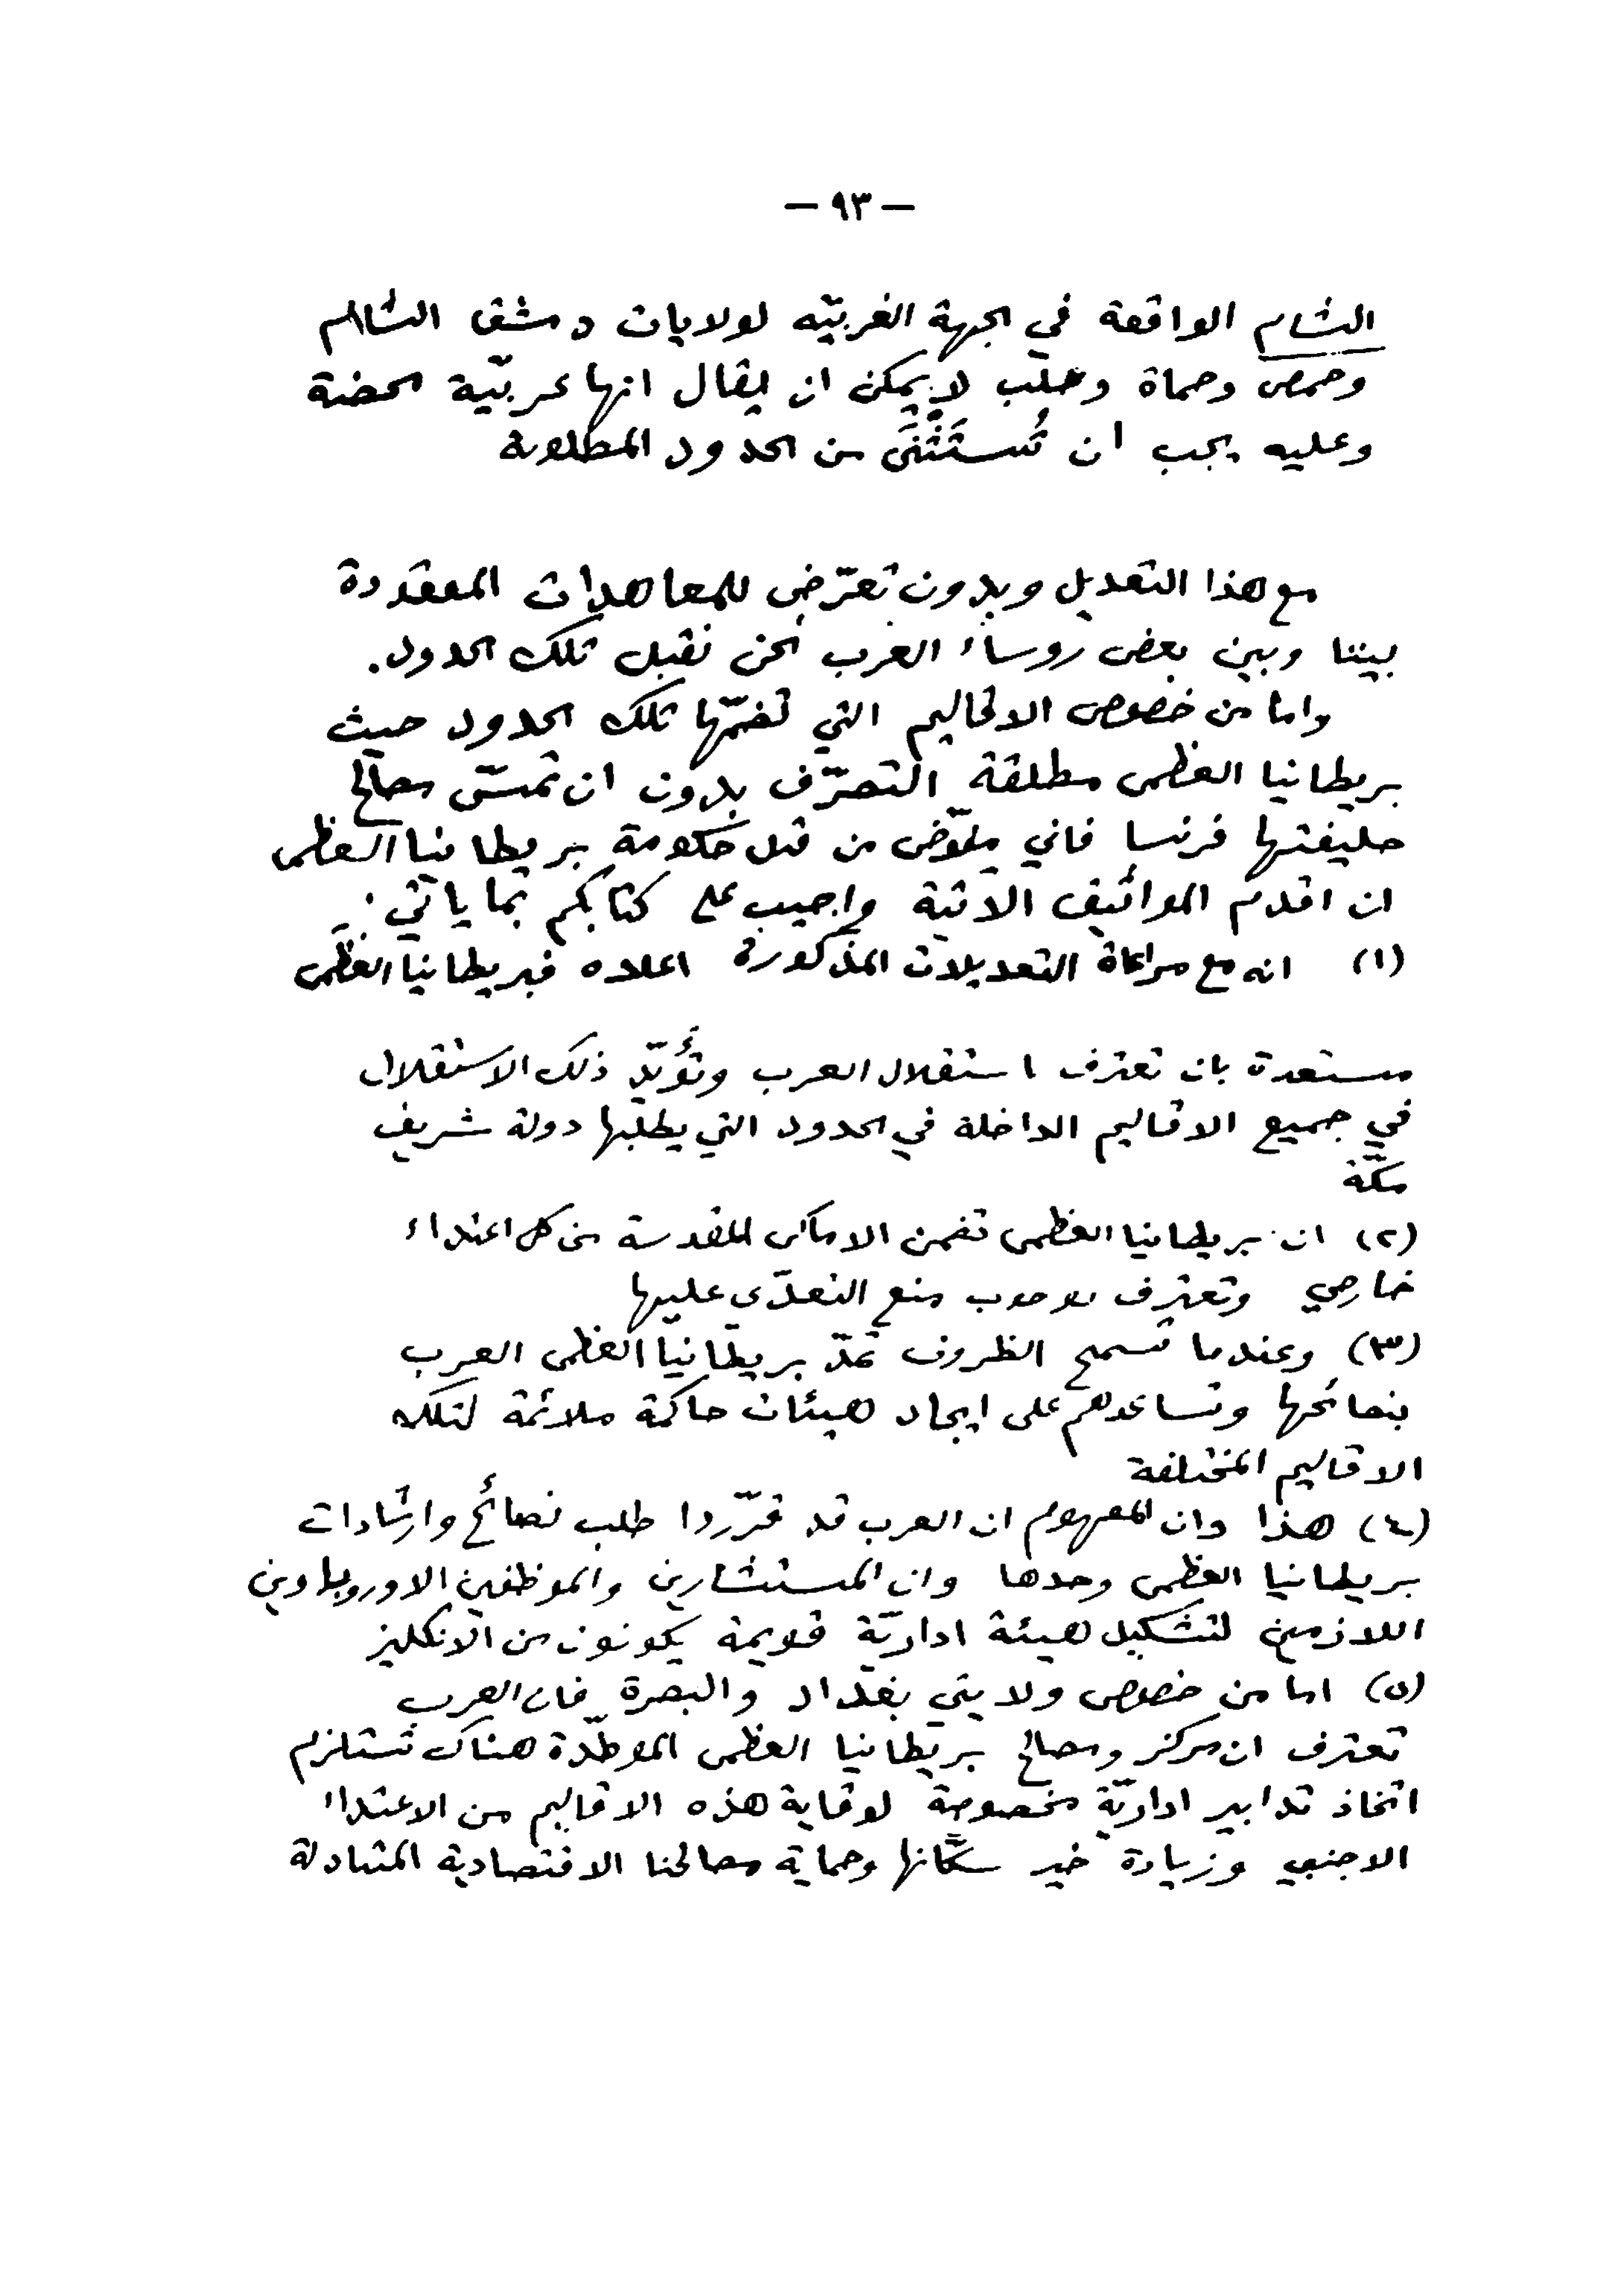 — ٩٣ —
الشام الواقعة في الجهة الغربيّه لولايات دمشق الشام
وحمص وحماة وحلب لا يمكن ان يقال انها عربيّة محضة
وعليه يجب ان تُستَثْنَى من الحدود المطلوبة
مع هذا التعديل وبدون تعرّض للمعاهدات المعقودة
بيننا وبين بعض روساء العرب نحن نقبل تلك الحدود.
واما من خصوص الاقاليم التي تضمّها تلك الحدود حيث
بريطانيا العظمى مطلقة التصرّف بدون ان تمسّ مصالح
حليفتها فرنسا فاني مفوّض من قبل حكومة بريطانيا العظمى
ان اقدم المواثيق الاتية واجيب على كتابكم بما ياتي:
(١) انه مع مراعاة التعديلات المذكورة اعلاه فبريطانيا العظمى
مستعدة بان تعترف باستقلال العرب وتؤيّد ذلك الاستقلال
في جميع الاقاليم الداخلة في الحدود التي يطلبها دولة شريف
مكّة
(٢) ان بريطانيا العظمى تضمن الاماكن المقدسة من كل اعتداء
خارجي وتعترف بوجوب منع التعدّي عليها
(٣) وعندما تسمح الظروف تمدّ بريطانيا العظمى العرب
بنصائحها وتساعدهم على ايجاد هيئات حاكمة ملائمة لتلك
الاقاليم المختلفة
(٤) هذا وان المفهوم ان العرب قد قرّروا طلب نصائح وارشادات
بريطانيا العظمى وحدها وان المستشارين والموظفين الاوروباوين
اللازمين لتشكيل هيئة اداريّة قويمة يكونون من الانكليز
(٥) اما من خصوص ولايتي بغداد والبصرة فان العرب
تعترف ان مركز ومصالح بريطانيا العظمى الموطّدة هناك تستلزم
اتخاذ تدابير اداريّة مخصوصة لوقاية هذه الاقاليم من الاعتداء
الاجنبي وزيادة خير سكّانها وحماية مصالحنا الاقتصادية المتبادلة